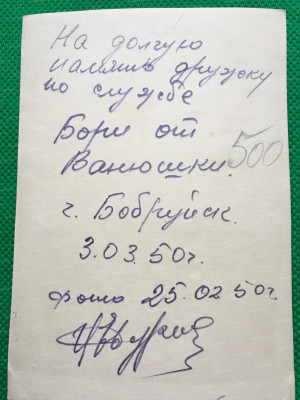 На долгую
память дружку
по службе
Бори от
Ванюшки. 500
г. Бобруйск.
3.03.50г.
фото 25.02.50г.